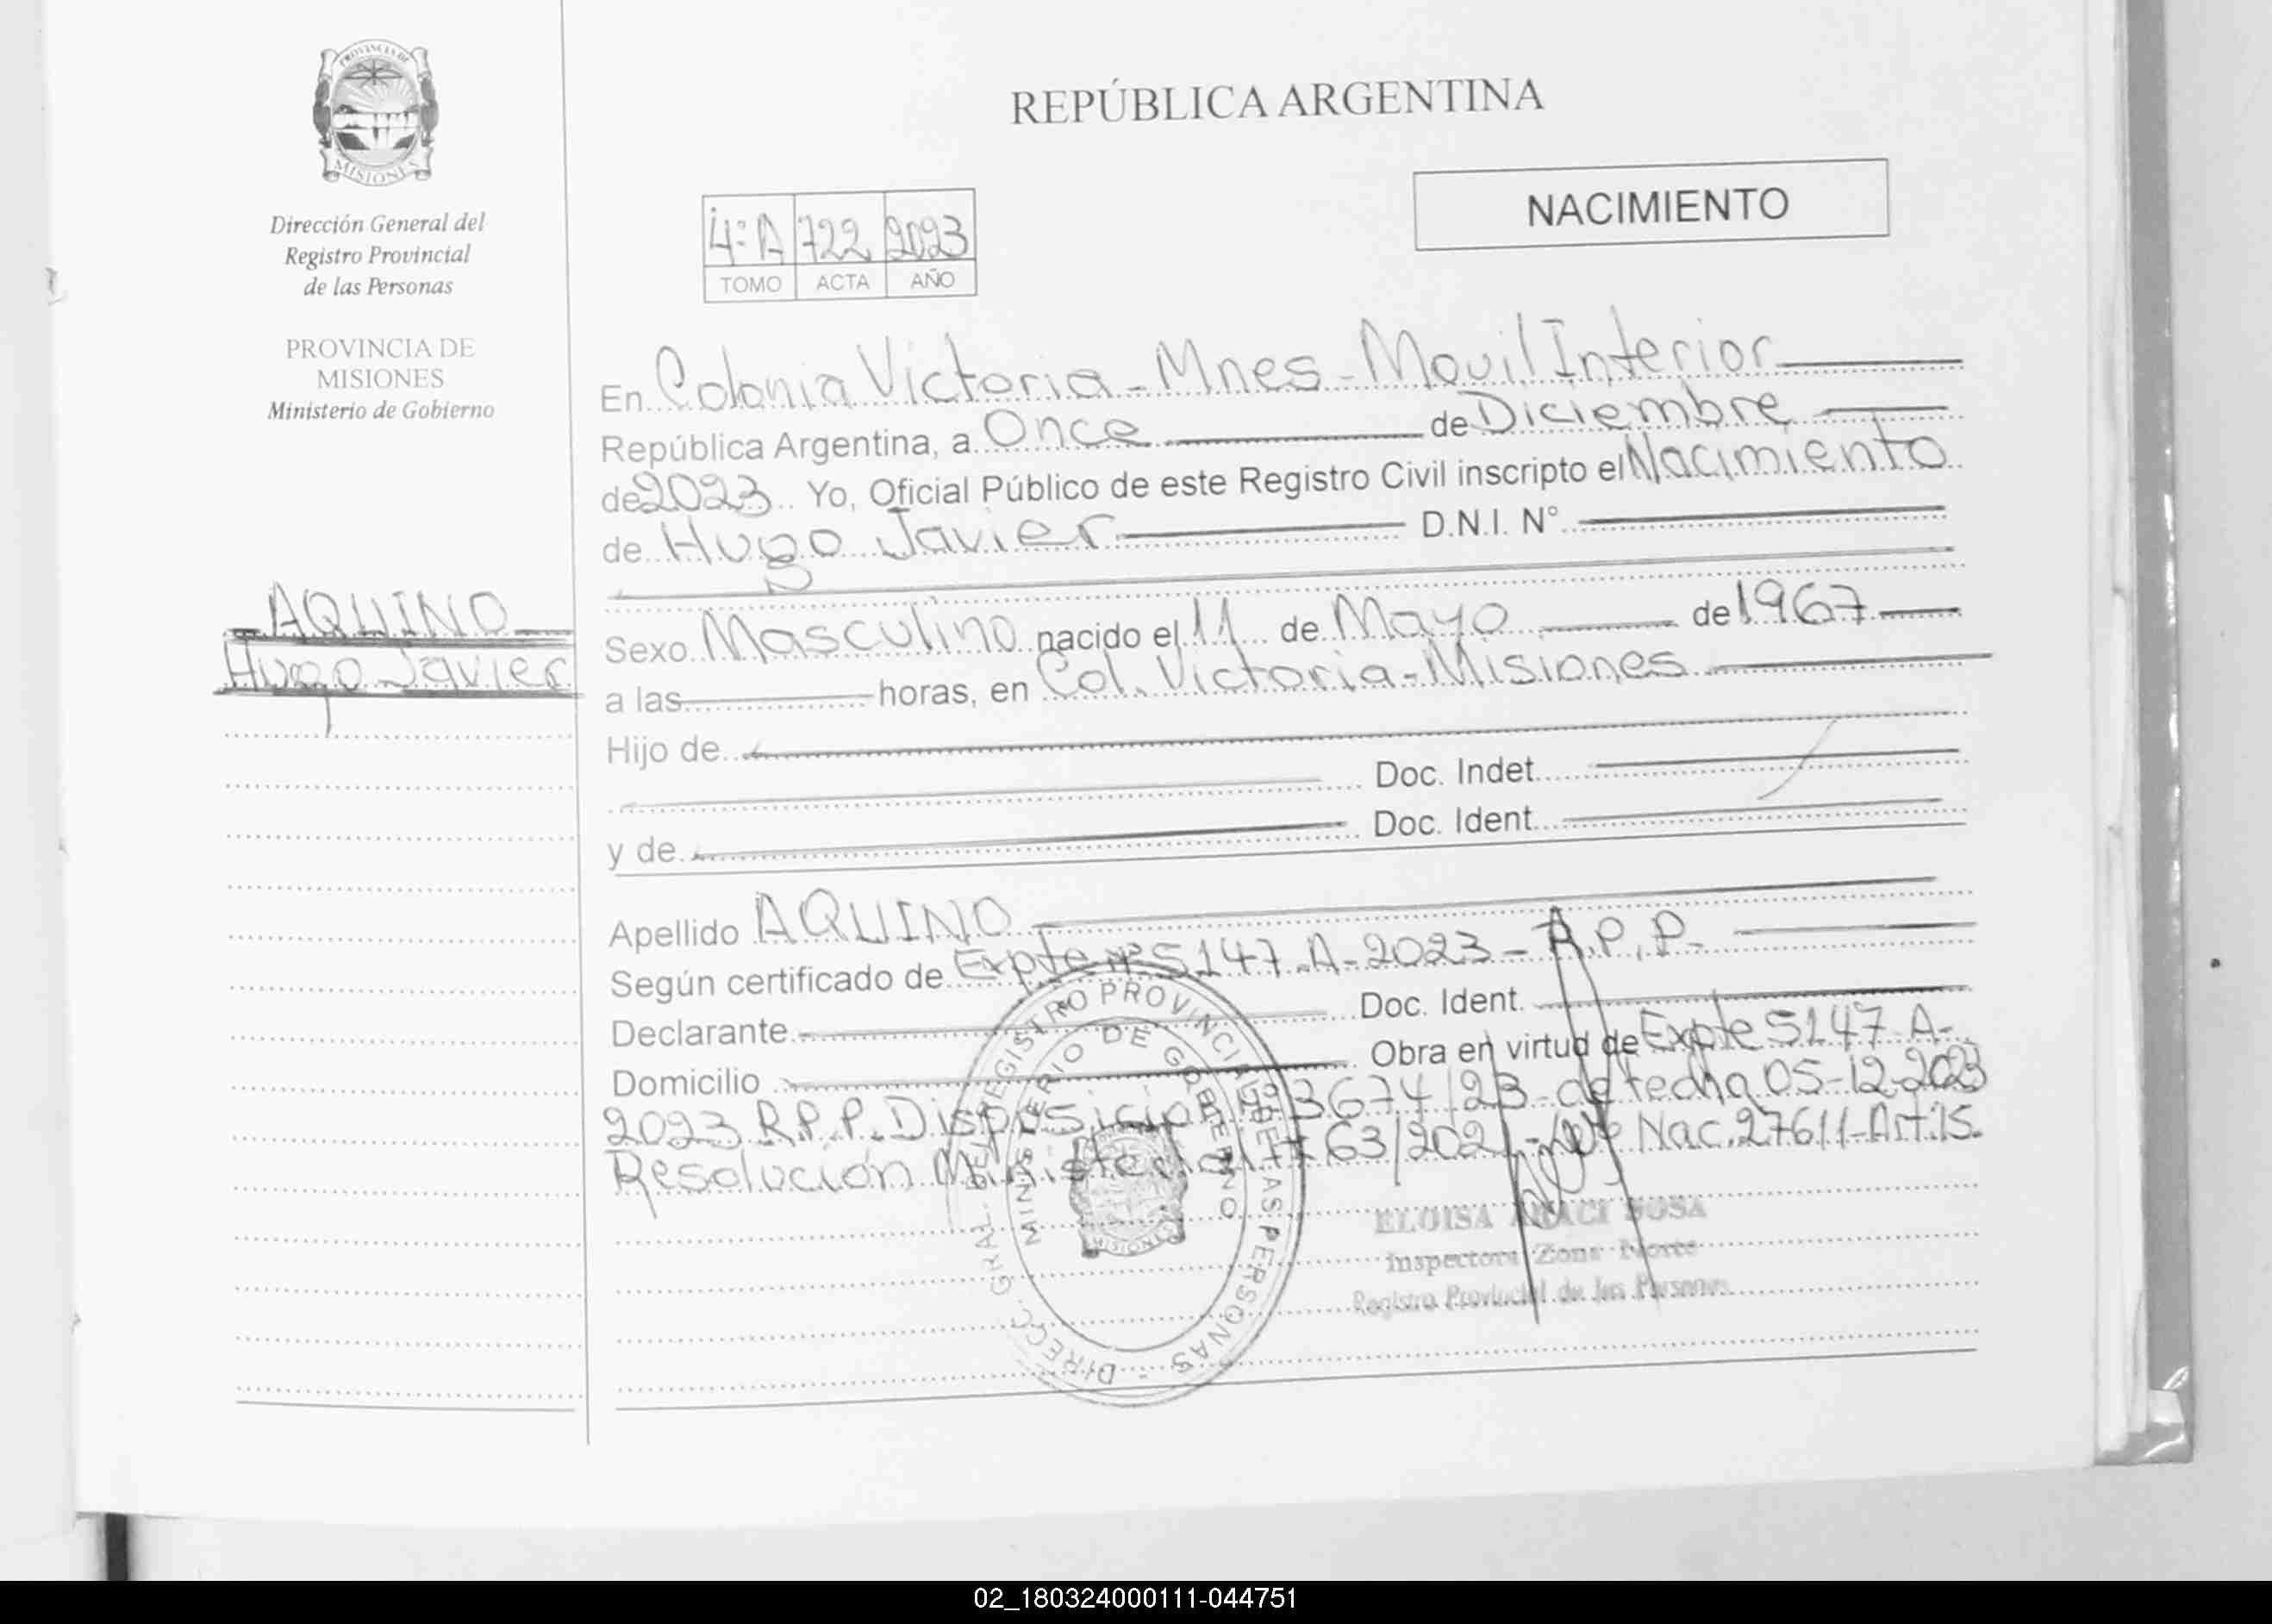 PROVINCIA DE
MISIONES
Dirección General del
Registro Provincial
de las Personas
PROVINCIA DE
MISIONES
Ministerio de Gobierno
AQUINO
Hugo Javier
REPÚBLICA ARGENTINA
NACIMIENTO
4º A 722 2023
TOMO ACTA AÑO
En Colonia Victoria - Mnes - Movil Interior
República Argentina, a Once de Diciembre
de 2023 Yo, Oficial Público de este Registro Civil inscripto el Nacimiento
de Hugo Javier D.N.I. N°
Sexo Masculino nacido el 11 de Mayo de 1967
a las horas, en Col. Victoria - Misiones
Hijo de
Doc. Indet.
y de Doc. Ident.
Apellido AQUINO
Según certificado de Expte nº 5147-A-2023 - R.P.P.
Declarante Doc. Ident.
Domicilio Obra en virtud de Expte 5147-A-
2023 R.P.P. Disposición nº 3674/23 de fecha 05-12-2023
Resolución Ministerial # 63/2021 - Ley Nac. 27611 - Art. 15.
DIRECC. GRAL. DEL REGISTRO PROVINCIAL DE LAS PERSONAS
MINISTERIO DE GOBIERNO
MISIONES
ELOISA ARACI SOSA
Inspectora Zona Norte
Registro Provincial de las Personas
02_180324000111-044751